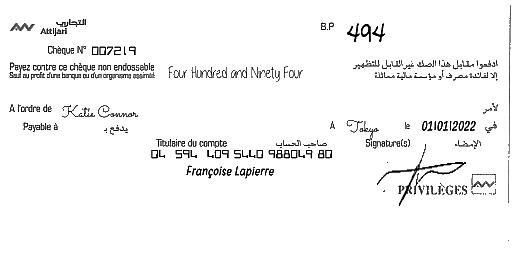 التجاري
Attijari
B.P 494
Chèque N° 007219
Payez contre ce chèque non endossable
Sauf au profit d'une banque ou d'un organisme assimilé
Four Hundred and Ninety Four
ادفعوا مقابل هذا الصك غير القابل للتظهير
إلا لفائدة مصرف أو مؤسسة مالية مماثلة
A l'ordre de Katie Connor لأمر
Payable à يدفع بـ
A Tokyo le 01/01/2022 في
Titulaire du compte صاحب الحساب Signature(s) الإمضاء
04 594 409 5440 988049 80
Françoise Lapierre
PRIVILÈGES